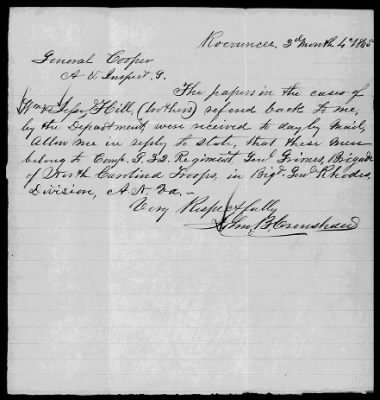 Rocouncee, 3d Month 4th 1865
General Cooper
A & Inspect. G.
The papers in the cases of
Wm & Jesse Hill, (brothers) referred back to me,
by the Department, were received to day by Mail,
Allow me in reply to state, that these men
belong to Comp. G. 32 Regiment Genl Grimes, Brigade
of North Carolina Troops, in Brigr. Genl Rhodes,
Division, A. N. Va. —
Very Respectfully
John B. Crenshaw